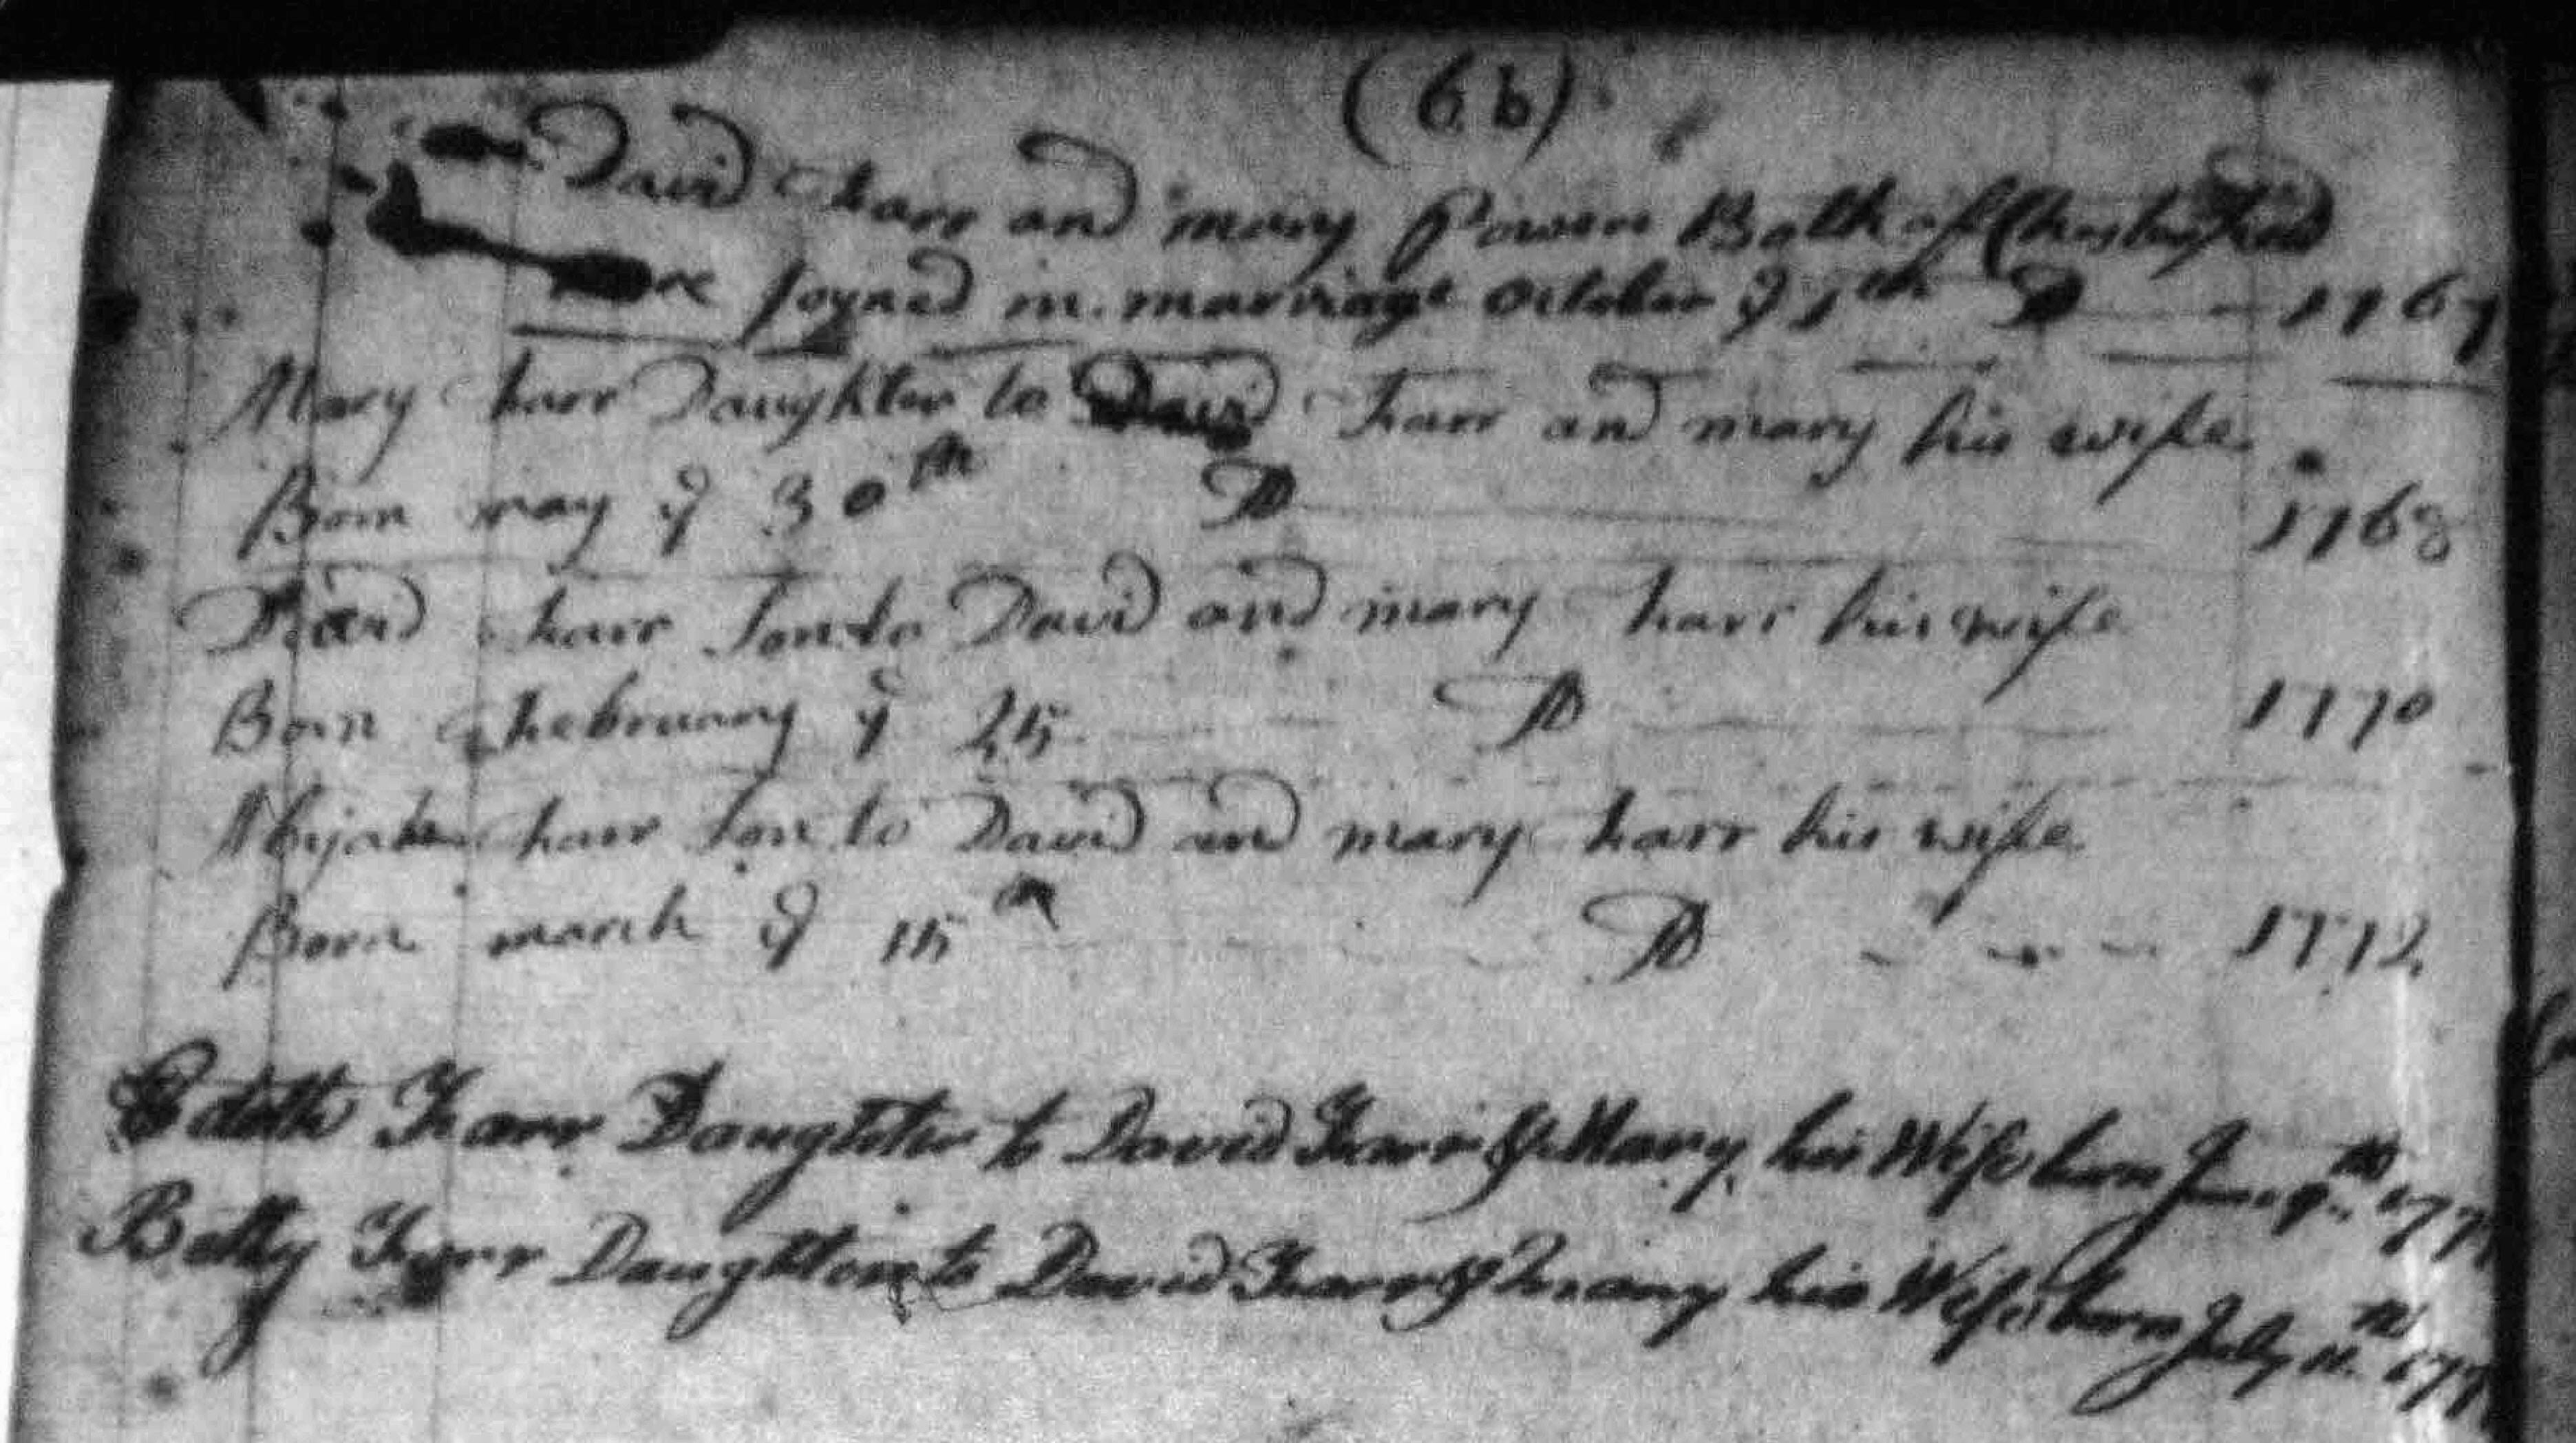 (6b)
David Farr and mary Powers Both of Chesterfield
were joyned in marriage October ye 1th AD 1767
Mary Farr Daughter to David Farr and mary his wife
Born may ye 30th AD 1768
David Farr Son to David and mary Farr his wife
Born Febrruary ye 25 AD 1770
Abijah Farr Son to David and mary Farr his wife
Born march ye 15th AD 1772
Edeth Farr Daughter to David Farr & Mary his Wife born June
Betty Farr Daughter to David Farr & Mary his Wife born July 11th